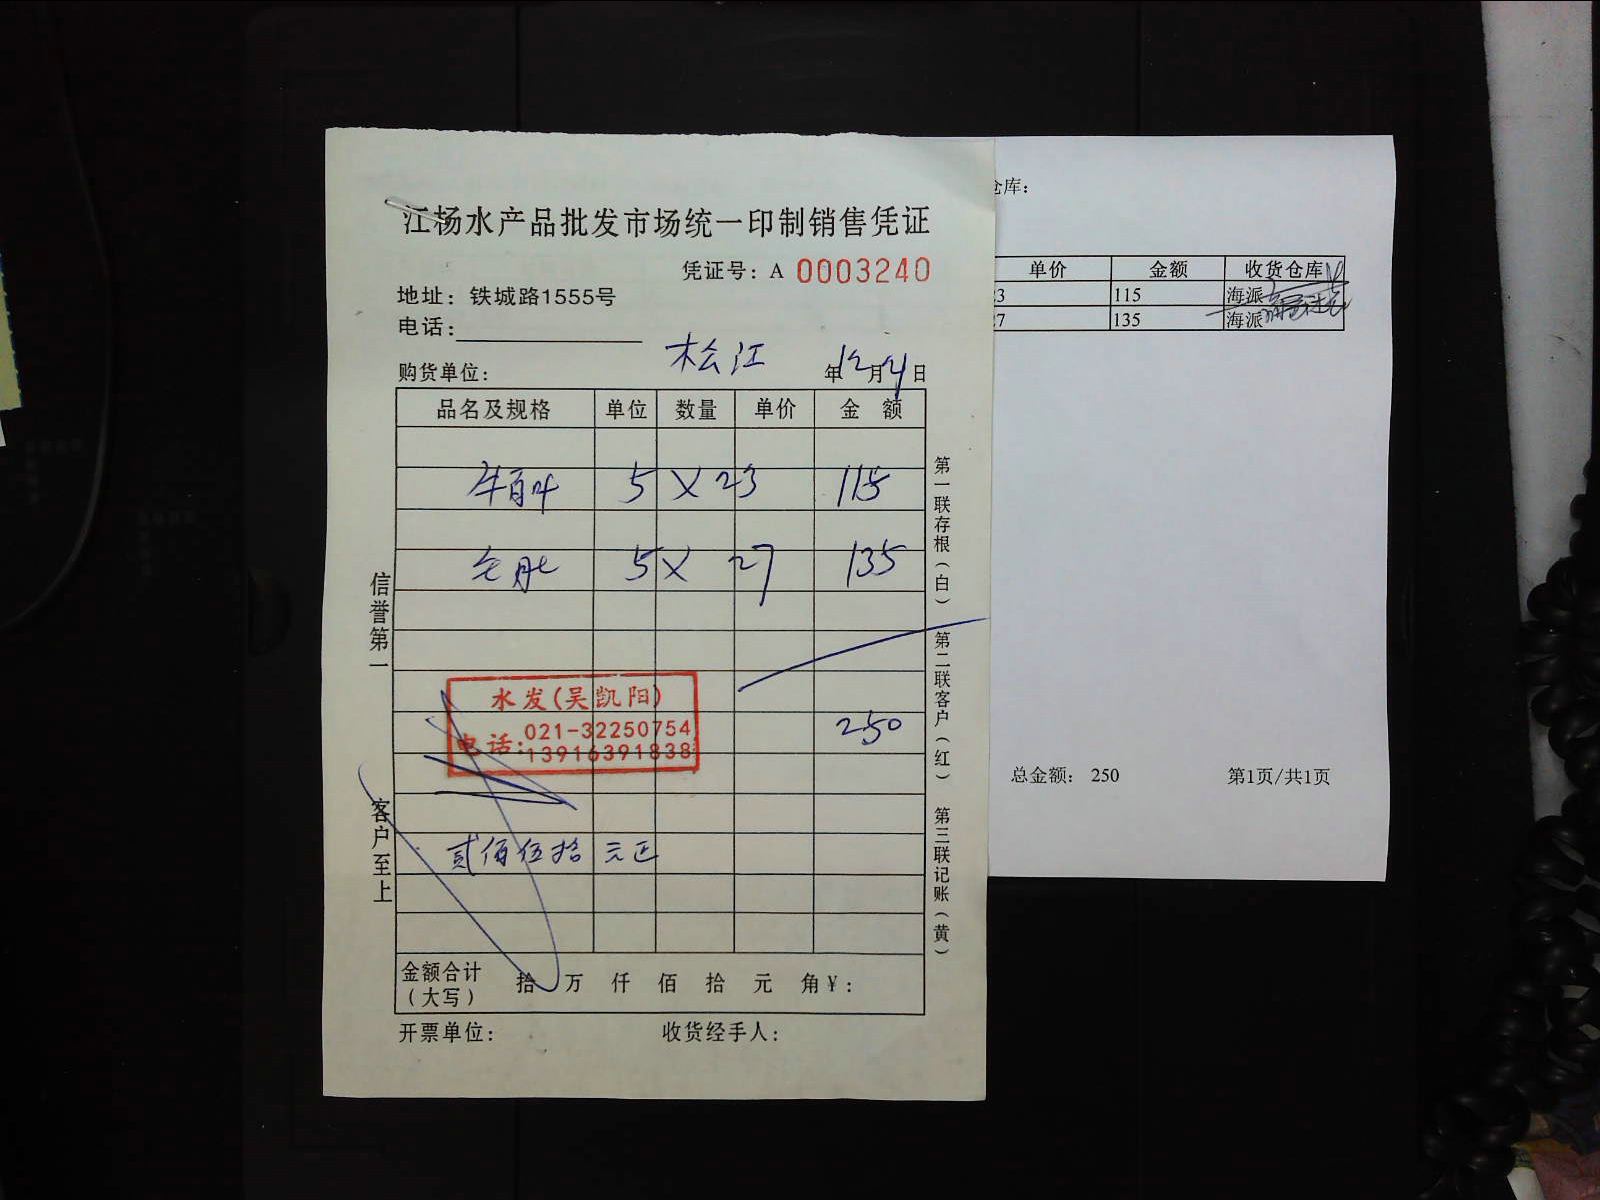 江杨水产品批发市场统一印制销售凭证
凭证号：A 0003240
地址：铁城路1555号
电话：
松江
购货单位： 年12月4日
品名及规格 单位 数量 单价 金 额
牛百叶 5 X 23 115
毛肚 5 X 27 135
250
水发(吴凯阳)
电话：021-32250754
13916391838
贰佰伍拾元正
金额合计（大写） 拾 万 仟 佰 拾 元 角 ¥：
开票单位： 收货经手人：
信誉第一
客户至上
第一联存根（白）
第二联客户（红）
第三联记账（黄）
仓库：
单价 金额 收货仓库
3 115 海派
7 135 海派
总金额： 250 第1页/共1页